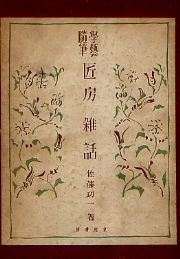 學藝
隨筆
匠房雜話
佐藤功一著